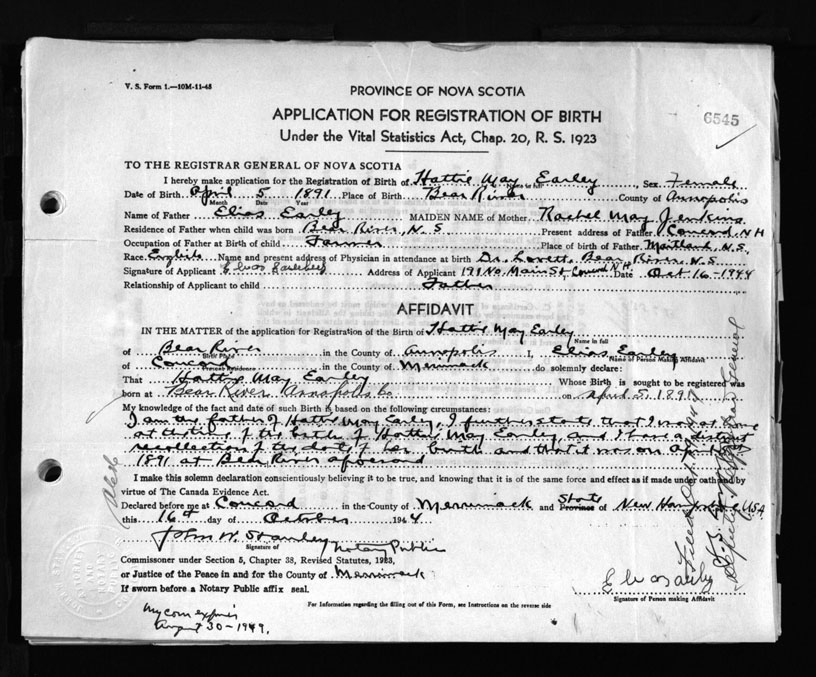 V. S. Form 1.—10M-11-43
PROVINCE OF NOVA SCOTIA
6545
APPLICATION FOR REGISTRATION OF BIRTH
Under the Vital Statistics Act, Chap. 20, R. S. 1923
TO THE REGISTRAR GENERAL OF NOVA SCOTIA
I hereby make application for the Registration of Birth of Hattie May Earley, Sex Female
Name in full
Date of Birth April 5 1891 Place of Birth Bear River County of Annapolis
Month Date Year
Name of Father Elias Earley MAIDEN NAME of Mother Rachel May Jenkins
Residence of Father when child was born Bear River, N. S. Present address of Father Concord, N H
Occupation of Father at Birth of child Farmer Place of Birth of Father Maitland, N.S.
Race English Name and present address of Physician in attendance at birth Dr. Lovett, Bear River, N. S.
Signature of Applicant Address of Applicant 191 No. Main St, Concord N H Date Oct 16 - 1944
Relationship of Applicant to child Father
AFFIDAVIT
IN THE MATTER of the application for Registration of the Birth of Hattie May Earley
Name in full
of Bear River in the County of Annapolis I, Elias Earley
Birth Place Name of Person Making Affidavit
of Concord in the County of Merrimack do solemnly declare:
Present Residence
That Hattie May Earley Whose Birth is sought to be registered was
born at Bear River Annapolis Co on April 5, 1891
My knowledge of the fact and date of such Birth is based on the following circumstances:
I am the father of Hattie May Earley, I further state that I was at home
at the time of the birth of Hattie May Earley and I have a distinct
recollection of the date of her birth and that it was on April 5th
1891 at Bear River aforesaid
I make this solemn declaration conscientiously believing it to be true, and knowing that it is of the same force and effect as if made under oath and by
virtue of The Canada Evidence Act.
Declared before me at Concord in the County of Merrimack and State Province of New Hampshire USA
this 16th day of October 1944
John W. Stanley Notary Public
Signature of
Commissioner under Section 5, Chapter 38, Revised Statutes, 1923,
or Justice of the Peace in and for the County of Merrimack
If sworn before a Notary Public affix seal.
Signature of Person making Affidavit
For Information regarding the filling out of this Form, see Instructions on the reverse side
My com expires
August 30 - 1949.
Deputy Registrar General